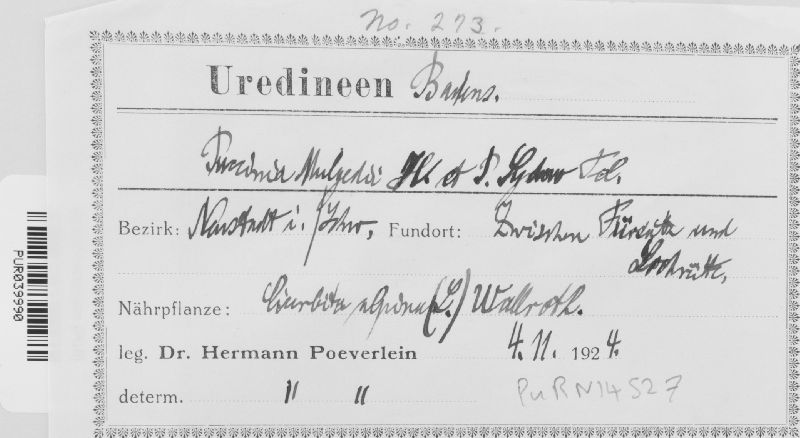 No. 273.
Uredineen Badens.
Puccinia Mulgedii H. et P. Sydow Fd.
Bezirk: Neustadt i. Schw, Fundort: Zwischen und
Nährpflanze: Cicerbita alpina (L.) Wallroth.
leg. Dr. Hermann Poeverlein 4. 11. 1924.
determ. " "
PURN14527
PUR039990